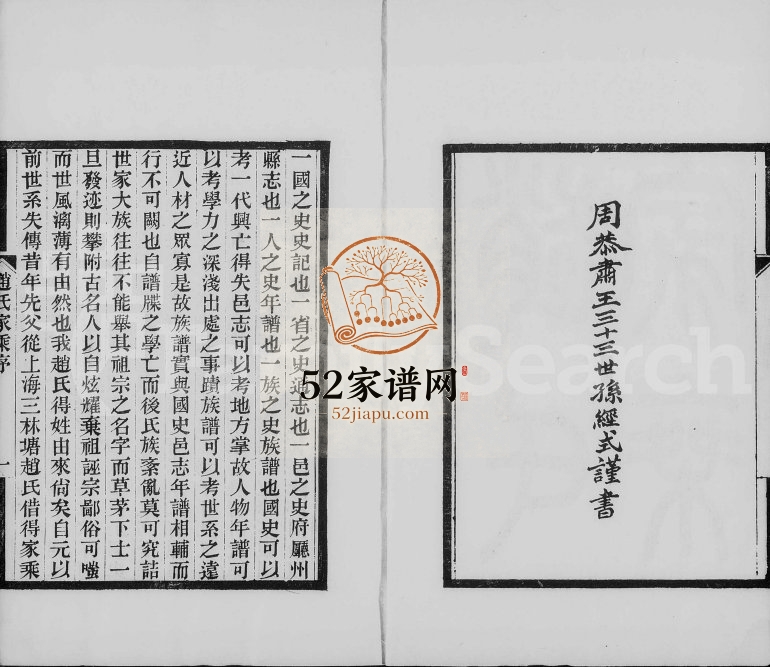 周恭肅王三十三世孫經式謹書
一國之史史記也一省之史通志也一邑之史府廳州
縣志也一人之史年譜也一族之史族譜也國史可以
考一代興亡得失邑志可以考地方掌故人物年譜可
以考學力之深淺出處之事蹟族譜可以考世系之遠
近人材之眾寡是故族譜實與國史邑志年譜相輔而
行不可闕也自譜牒之學亡而後氏族紊亂莫可究詰
世家大族往往不能舉其祖宗之名字而草茅下士一
旦發迹則攀附古名人以自炫燿棄祖誣宗鄙俗可嗤
而世風漓薄有由然也我趙氏得姓由來尙矣自元以
前世系失傳昔年先父從上海三林塘趙氏借得家乘
趙氏家乘序
一
52家谱网
52jiapu.com
Search